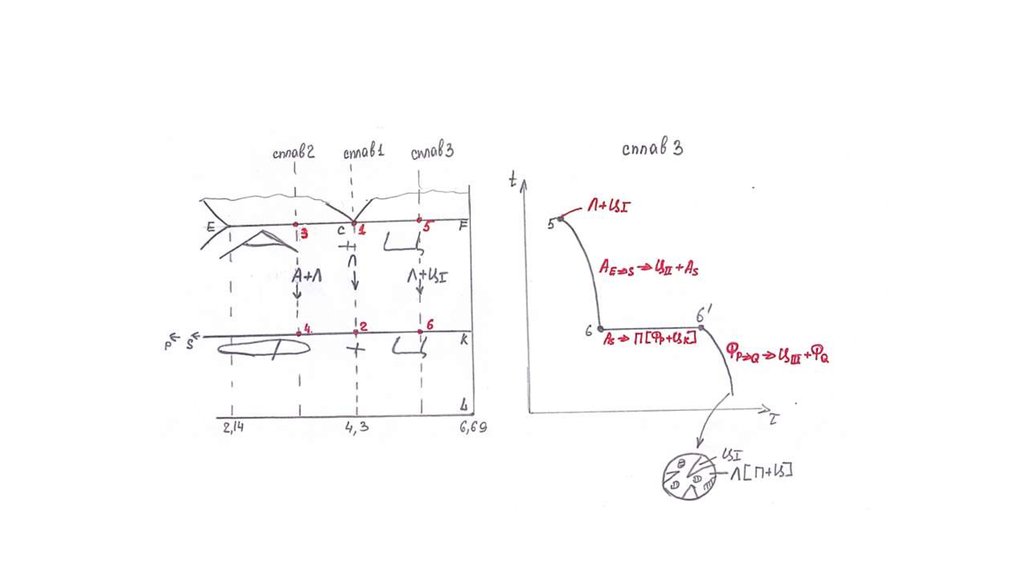 сплав2 сплав1 сплав3
E 3 C 1 5 F
Л
А+Л
Л+ЦI
4 2 6
P S K
L
2,14 4,3 6,69
сплав 3
t
5 Л+ЦI
A E→S → ЦII + AS
6 6'
AS → П[ФP+ЦK]
ФP→Q → ЦIII + ФQ
τ
ЦI
Л[П+Ц]